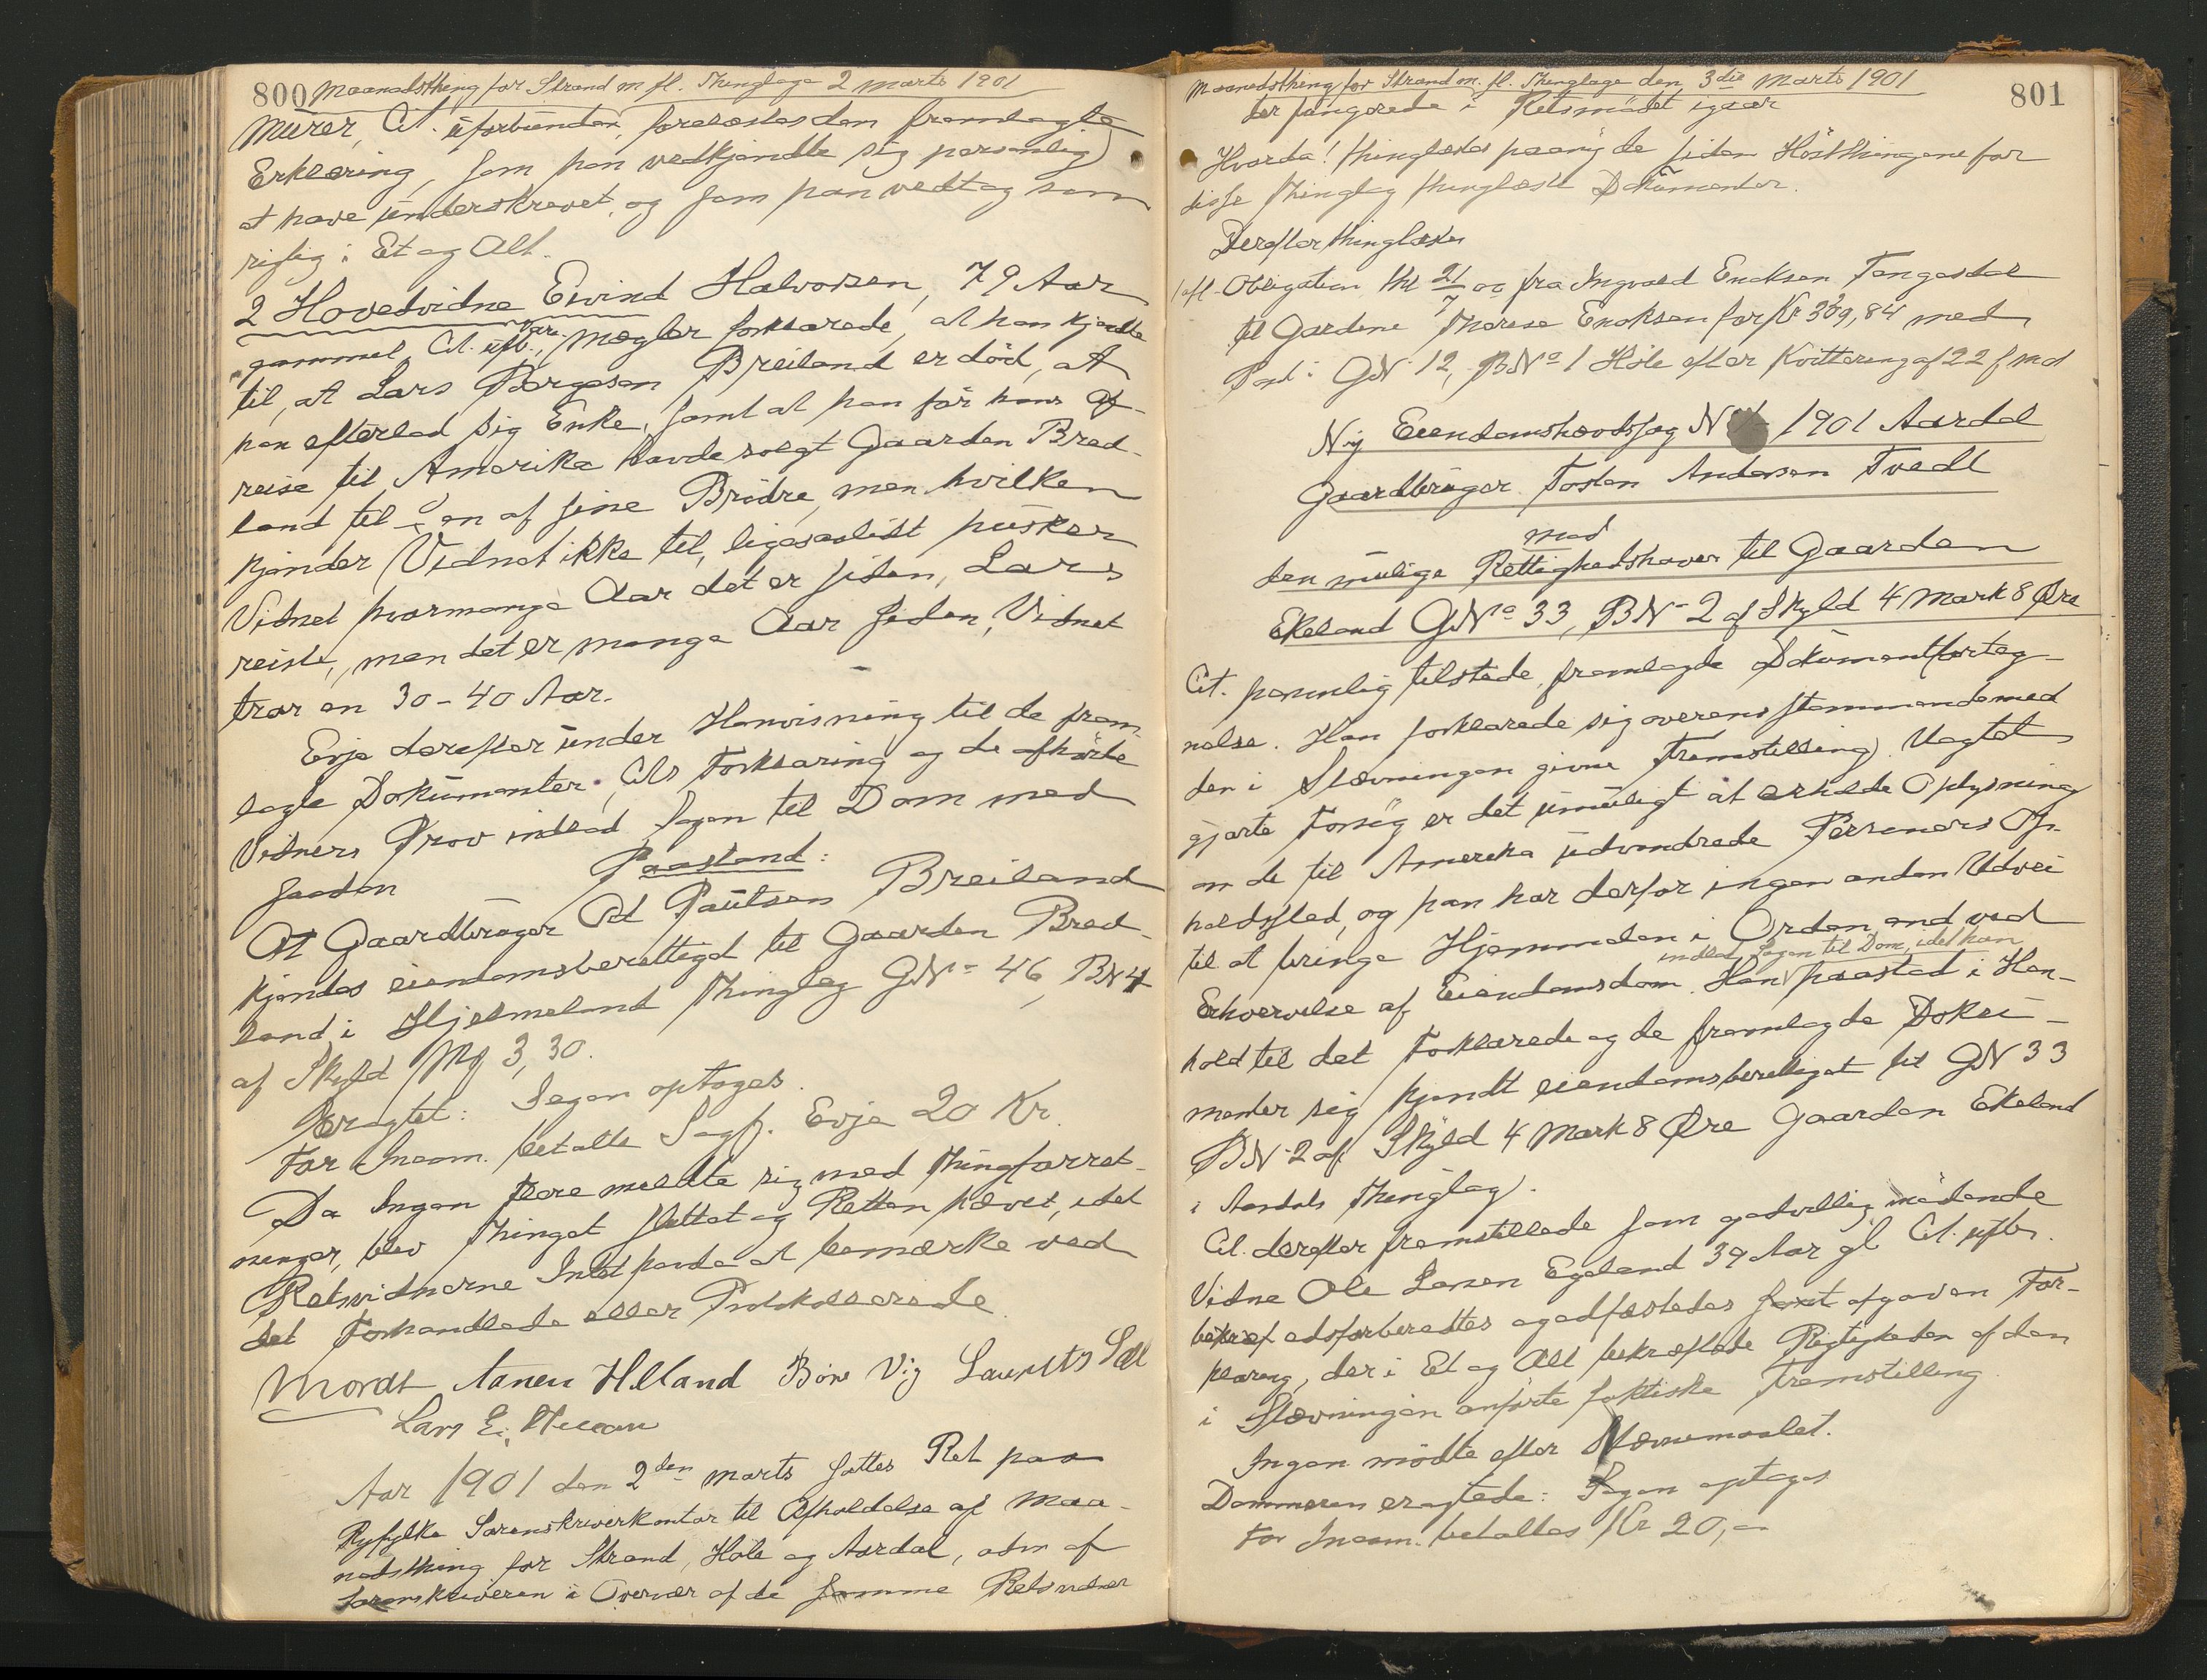 800 Maanedsthing for Strand m fl. Thinglage 2 marts 1901
murer, Cit. uforbunden, forelæstes den fremlagte
Erklæring, som han vedkjendte sig personlig
at have underskrevet, og som han vedtog som
rigtig i Et og Alt.
2 Hovedvidne Eivind Halvorsen, 79 Aar
gammel, Cit. ufb., Vare-mægler forklarede, at han kjendte
til, at Lars Børgesen Breiland er død, at
han efterlod sig Enke, samt at han før hans Af-
reise til Amerika havde solgt Gaarden Bred-
land til en af sine Brødre, men hvilken
kjender Vidnet ikke til, ligesaalidt husker
Vidnet hvormange Aar det er siden, Lars
reiste, men det er mange Aar siden, Vidnet
tror en 30-40 Aar.
Evje derefter under Henvisning til de frem
lagte Dokumenter, Cits Forklaring og de afhørte
Vidners Prov indlod Sagen til Dom med
saadan Paastand:
At Gaardbruger Ad Paulsen Breiland
kjendes eiendomsberettiget til Gaarden Bred-
land i Hjelmeland Thinglag GNo 46, BN 4
af Skyld Mk 3,30.
Eragtet: Sagen optages.
For Incam. betalte Sagf. Evje 20 Kr.
Da Ingen flere meldte sig med Thingforret-
ninger, blev Thinget sluttet og Retten hævet, idet
Retsvidnerne Intet havde at bemærke ved
det Forhandlede eller Protokollerede
Mordt Aanen Helland Børe Vig Laurits
Lars E.
Aar 1901 den 2den marts sattes Ret paa
Ryfylke Sorenskriverkontor til Afholdelse af Maa-
nedsthing for Strand, Høle og Aardal, adm af
Sorenskriveren i Overvær af de samme Retsvidner
Maanedsthing for Strand m. fl. Thinglage den 3die marts 1901 801
der fungerede i Retsmødet igaar
Hvorda! thinglæstes paany de siden Høstthingene for
disse Thinglag thinglæste Dokumenter.
Derefter thinglæstes
1 afl. Obligation thl 21/7 00 fra Ingvald Enoksen Tengesdal
til Gardene Therese Enoksen for Kr 369,84 med
Pant i GN 12, BNo 1 Høle efter Kvittering af 22 f md
Ny Eiendomshævdssag No 1901 Aardal
Gaardbruger Tosten Andersen Tvedt
mod
den mulige Rettighedshaver til Gaarden
Ekeland GNo 33, BN 2 af Skyld 4 mark 8 Øre
Cit. personlig tilstede, fremlagde Dokumentforteg-
nelse. Han forklarede sig overensstemmende med
den i Stævningen givne Fremstilling. Uagtet
gjorte Forsøg er det umuligt at erholde Oplysning
om de til Amerika udvandrede Personers Op-
holdssted, og han har derfor ingen anden Udvei
til at bringe Hjemmelen i Orden end ved
indlod Sagen til Dom, idet han
Erhvervelse af Eiendomsdom. Han paastod i Hen-
hold til det Forklarede og de fremlagde Doku-
menter sig kjendt eiendomsberettiget til GN 33
BN 2 af Skyld 4 Mark 8 Øre Gaarden Ekeland
i Aardals Thinglag.
Cit. derefter fremstillede som godvillig mødende
Vidne Ole Larsen Egeland 39 Aar gl Cit. ufb.
edsforberedtes og edfæstedes samt afgav en For-
klaring, der i Et og Alt bekræftede Rigtigheden af den
i Stævningen anførte faktiske Fremstilling
Ingen mødte efter Stævnemaalet.
Dommeren eragtede: Sagen optages
For Incam. betaltes Kr 20,-